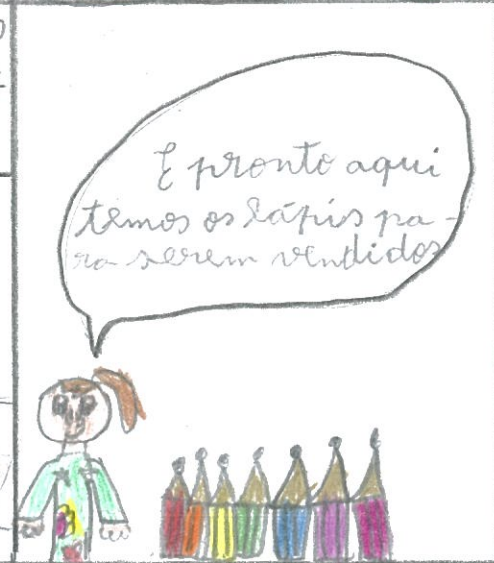 E pronto aqui
temos os lápis pa-
ra serem vendidos